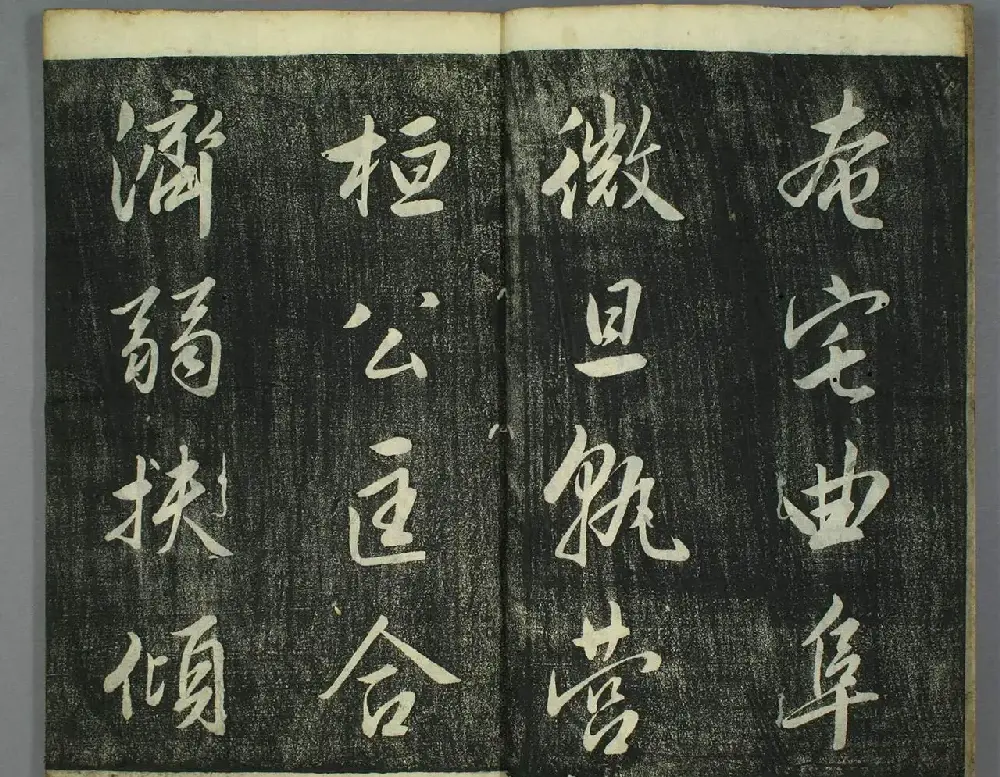 奄宅曲阜
微旦孰营
桓公匡合
濟弱扶傾